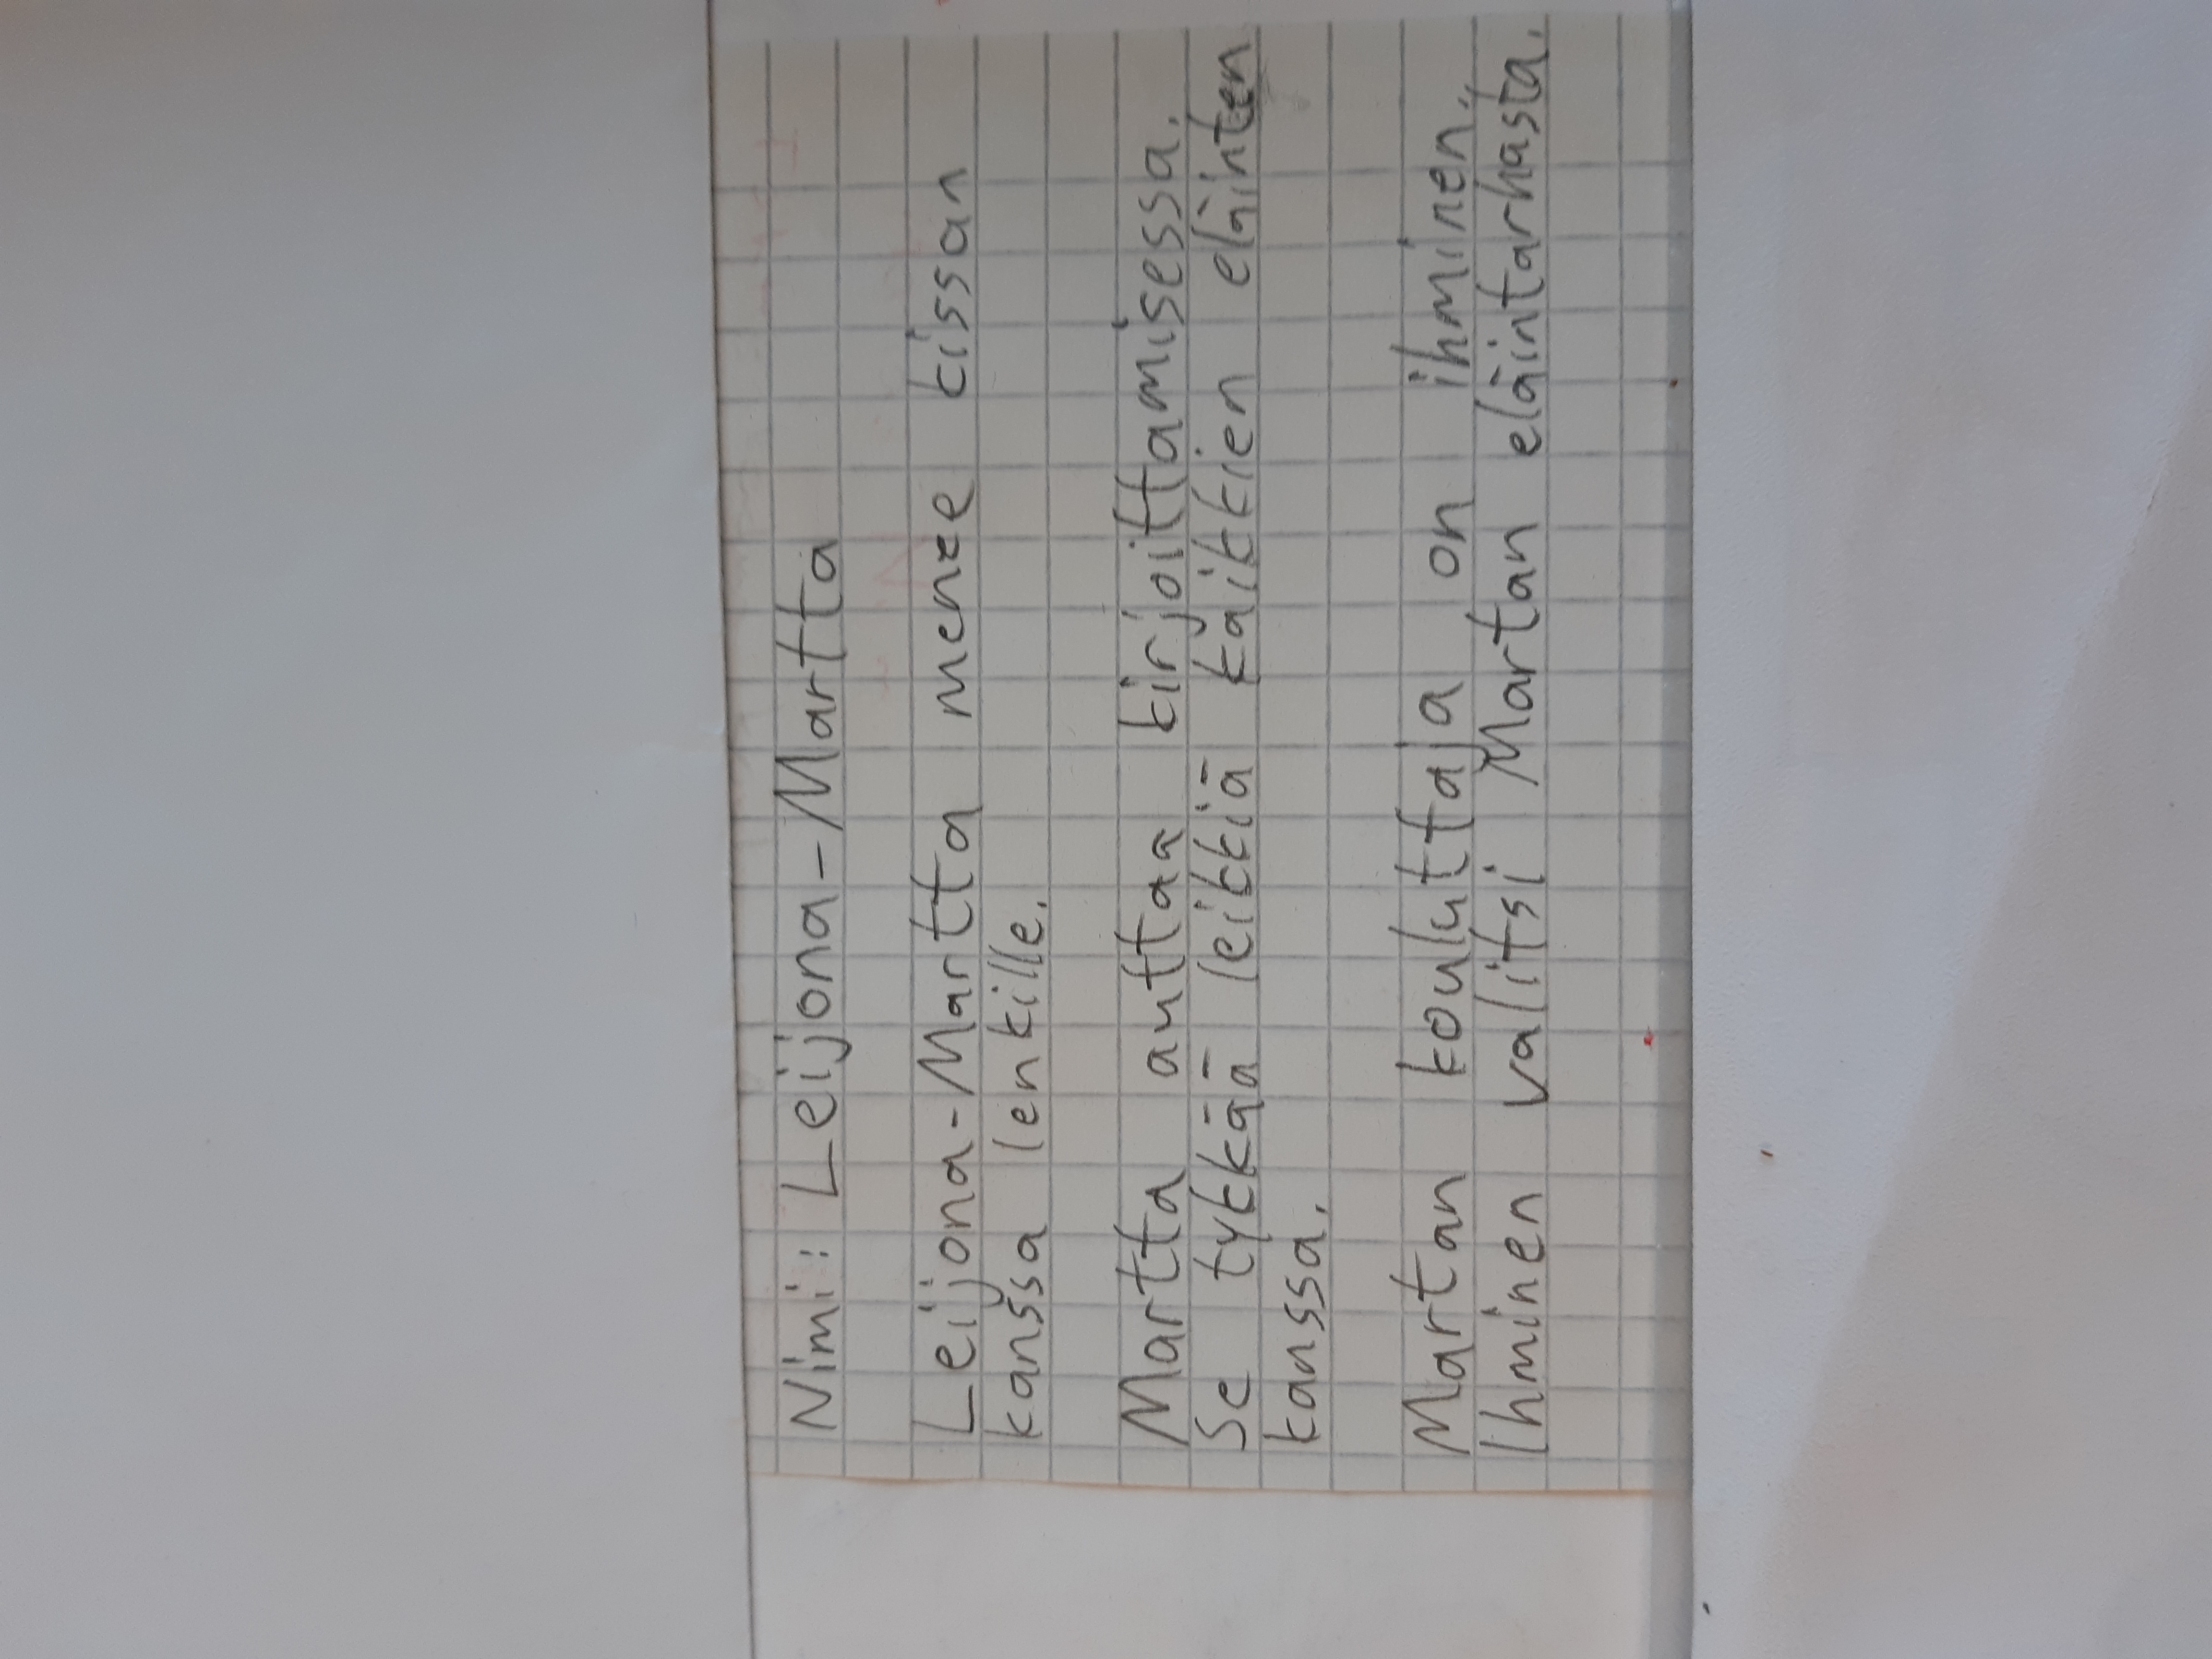 Nimi: Leijona-Martta
Leijona-Martta menee kissan
kanssa lenkille.
Martta auttaa kirjoittamisessa.
Se tykkää leikkiä kaikkien eläinten
kanssa.
Martan kouluttaja on ihminen.
Ihminen valitsi Martan eläintarhasta.